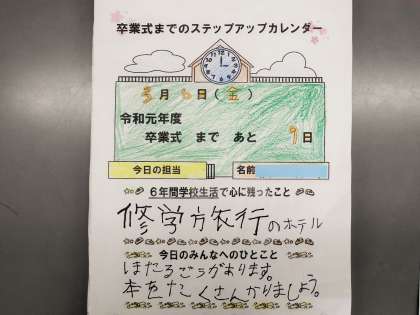 卒業式までのステップアップカレンダー
3月6日(金)
令和元年度
卒業式 まで あと 9日
今日の担当
名前
6年間学校生活で心に残ったこと
修学旅行のホテル
今日のみんなへのひとこと
ほたるごうがあります。
本をたくさんかりましょう。